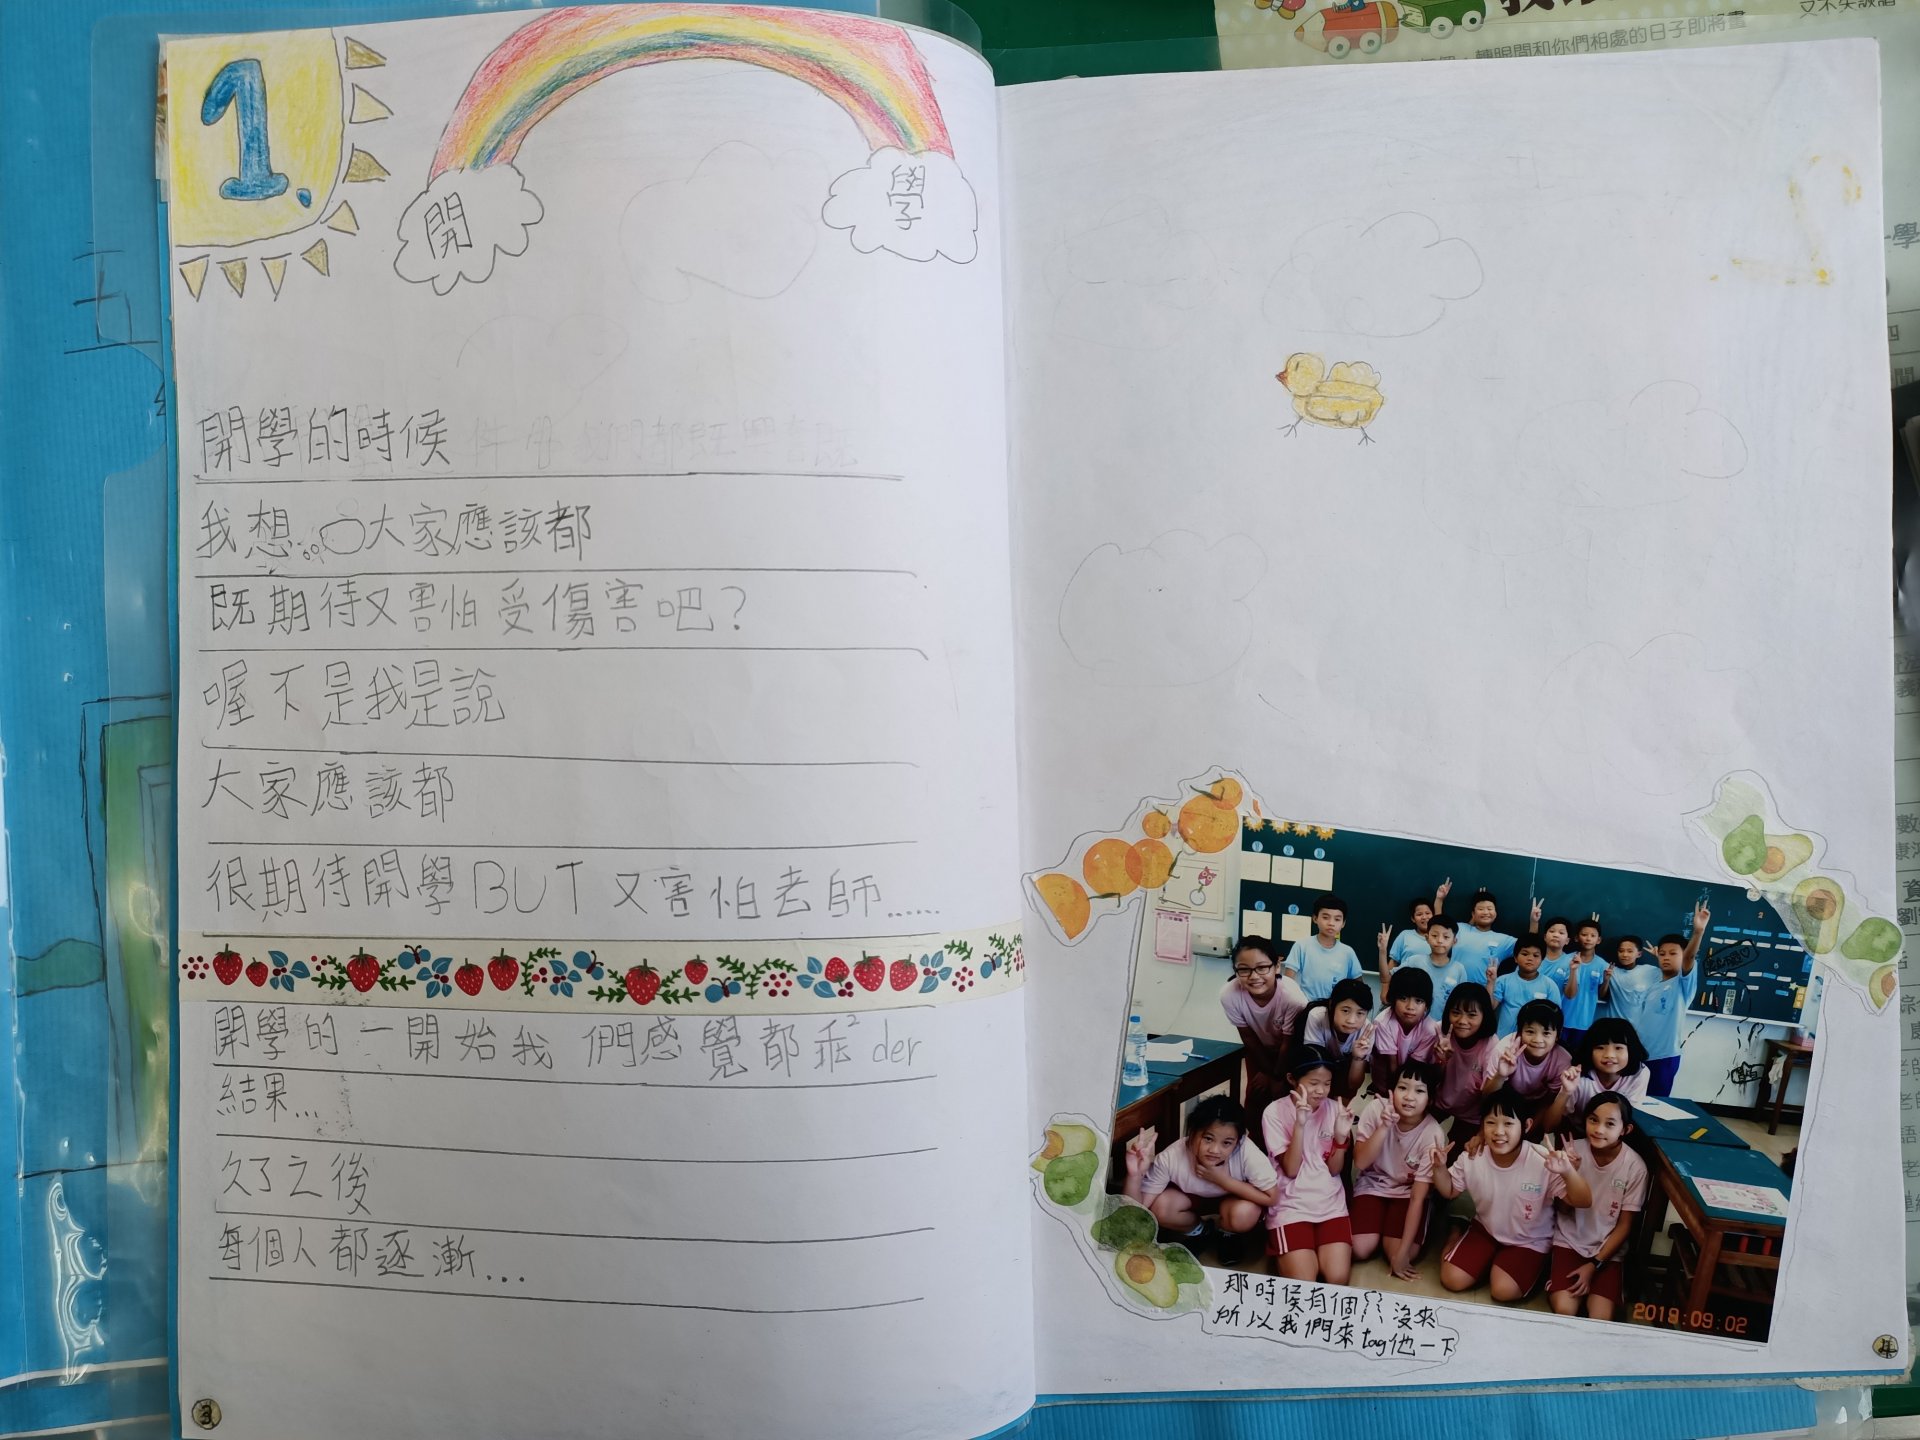 1.
開
學
開學的時候
我想...大家應該都
既期待又害怕受傷害吧？
喔不是我是說
大家應該都
很期待開學BUT又害怕老師......
開學的一開始我們感覺都乖²der
結果...
久了之後
每個人都逐漸...
3
轉眼間和你們相處的日子即將畫
2
2019:09:02
那時候有個 沒來
所以我們來tag他一下
4